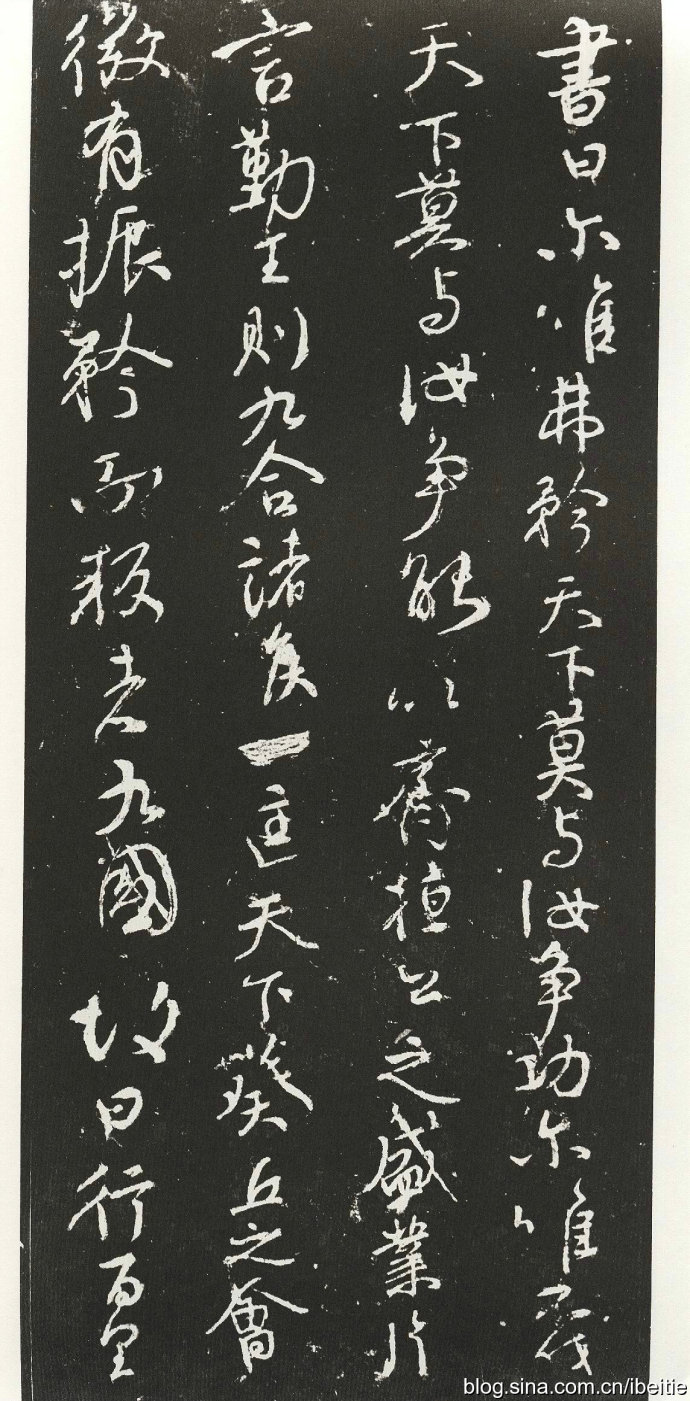 書曰尔唯弗矜天下莫与汝争功尔唯不伐
天下莫与汝争能以齊桓公之盛業片
言勤王則九合諸侯一匡天下葵丘之會
微有振矜而叛者九國故曰行百里
blog.sina.com.cn/ibeitie